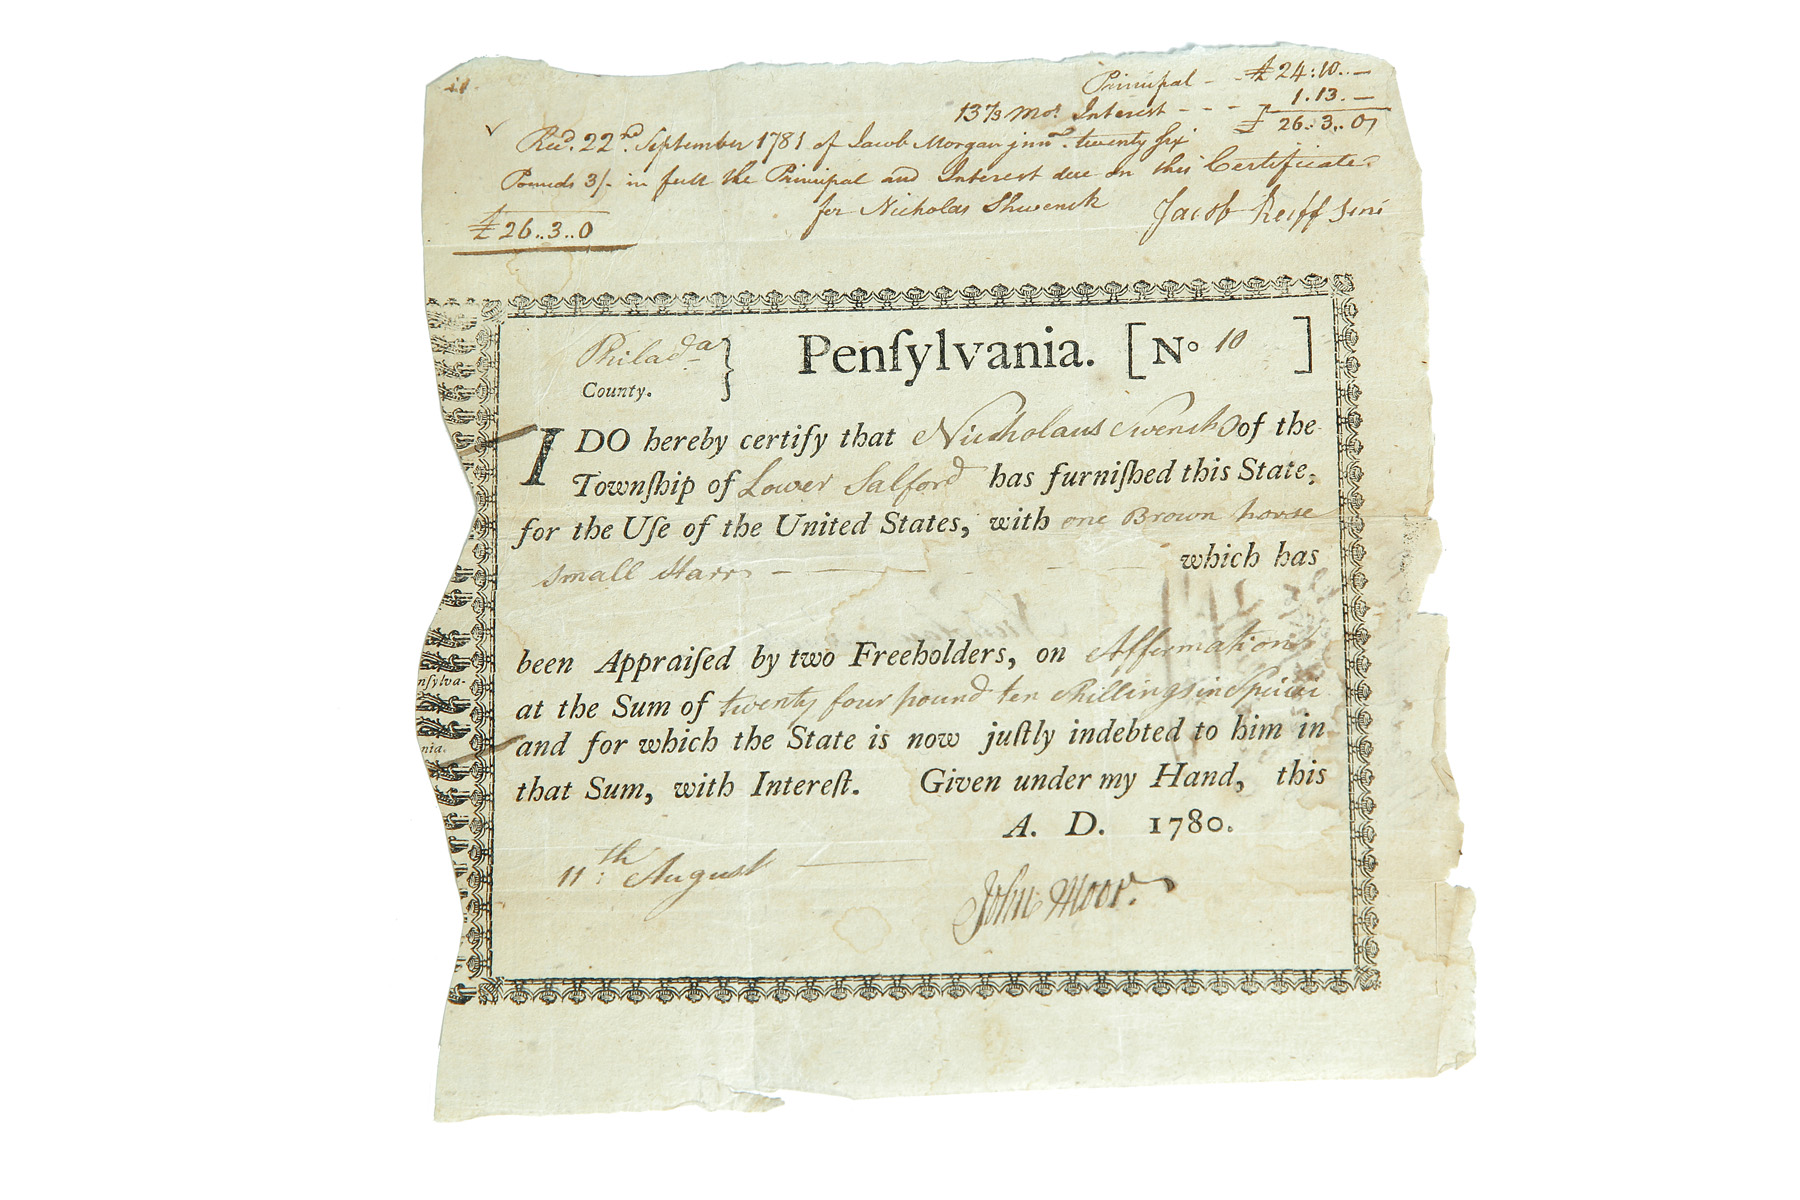 Principal - - £ 24:10..—
13⅓ Mos. Interest - - - 1.13.—
£ 26..3..0
Recd. 22nd. September 1781 of Jacob Morgan junr. twenty Six
Pounds 3/- in full the Principal and Interest due on this Certificate
for Nicholas Shwenck Jacob Reiff Senr
£ 26..3..0
Philada
County.
Penſylvania. [No 10 ]
I DO hereby certify that Nicholaus Swenck of the
Townſhip of Lower Salford has furniſhed this State,
for the Uſe of the United States, with one Brown horse
small Starr — which has
been Appraiſed by two Freeholders, on Affermations
at the Sum of twenty four pound ten Shillings in Specie
and for which the State is now juſtly indebted to him in
that Sum, with Intereſt. Given under my Hand, this
A. D. 1780.
11th: August —
John Moor.
nſylva-
nia.